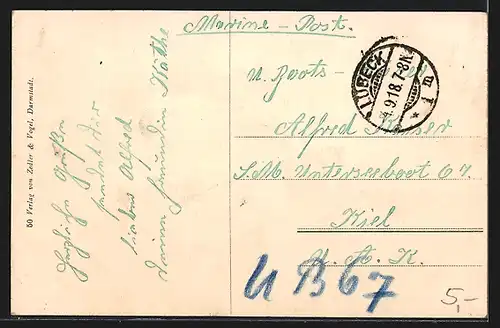 Marine-Post.
U. Boots-
Alfred Kaiser
S.M. Unterseeboot 67
Kiel
U. A. K.
U B 67
LÜBECK
4.9.18.7-8N.
* 1 m *
50 Verlag von Zeller & Vogel, Darmstadt.
Herzliche Grüße
sendet dir
lieber Alfred
deine Freundin Käthe
5,-